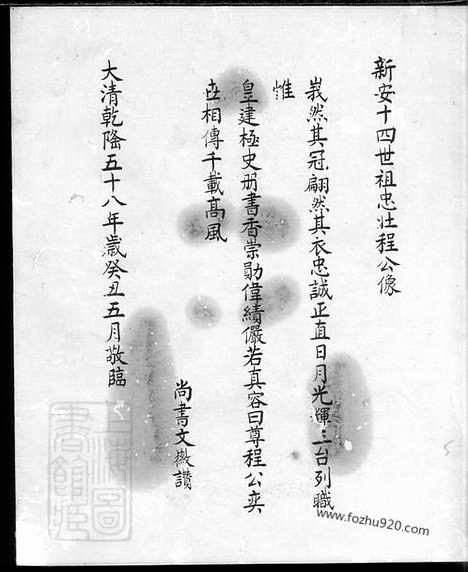 新安十四世祖忠壮程公像
峩然其冠翩然其衣忠誠正直日月光輝三台列職
惟
皇建極史册書香崇勛偉績儼若真容曰尊程公奕
世相傳千載高風
尚書文徽讚
大清乾隆五十八年歲癸丑五月敬臨
上海圖書館藏
www.fozhu920.com